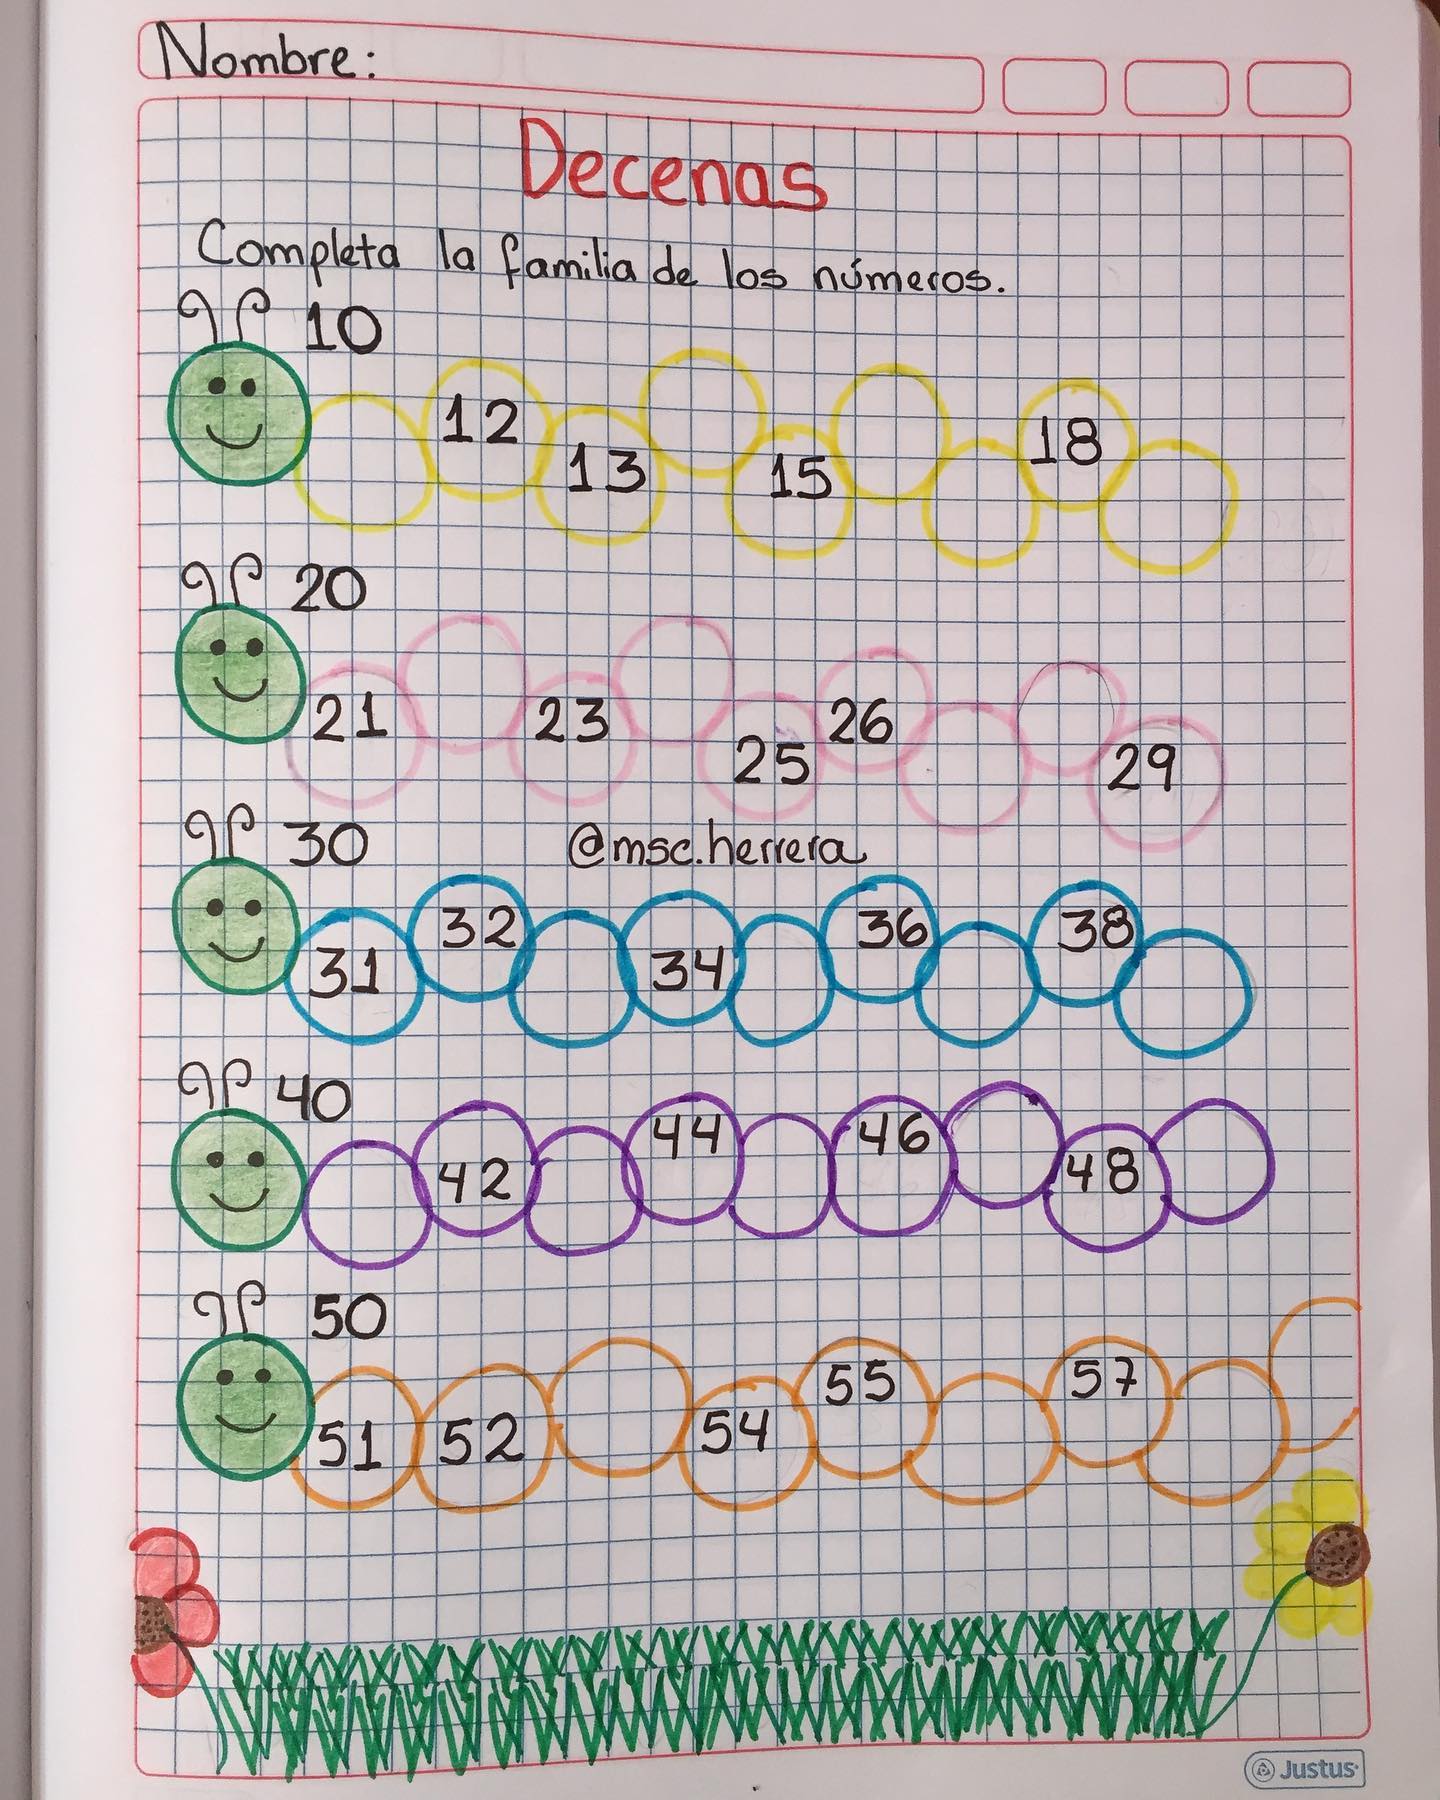 Nombre:
Decenas
Completa la familia de los números.
10
12 13 15 18
20
21 23 25 26 29
30 @msc.herrera
31 32 34 36 38
40
42 44 46 48
50
51 52 54 55 57
Justus